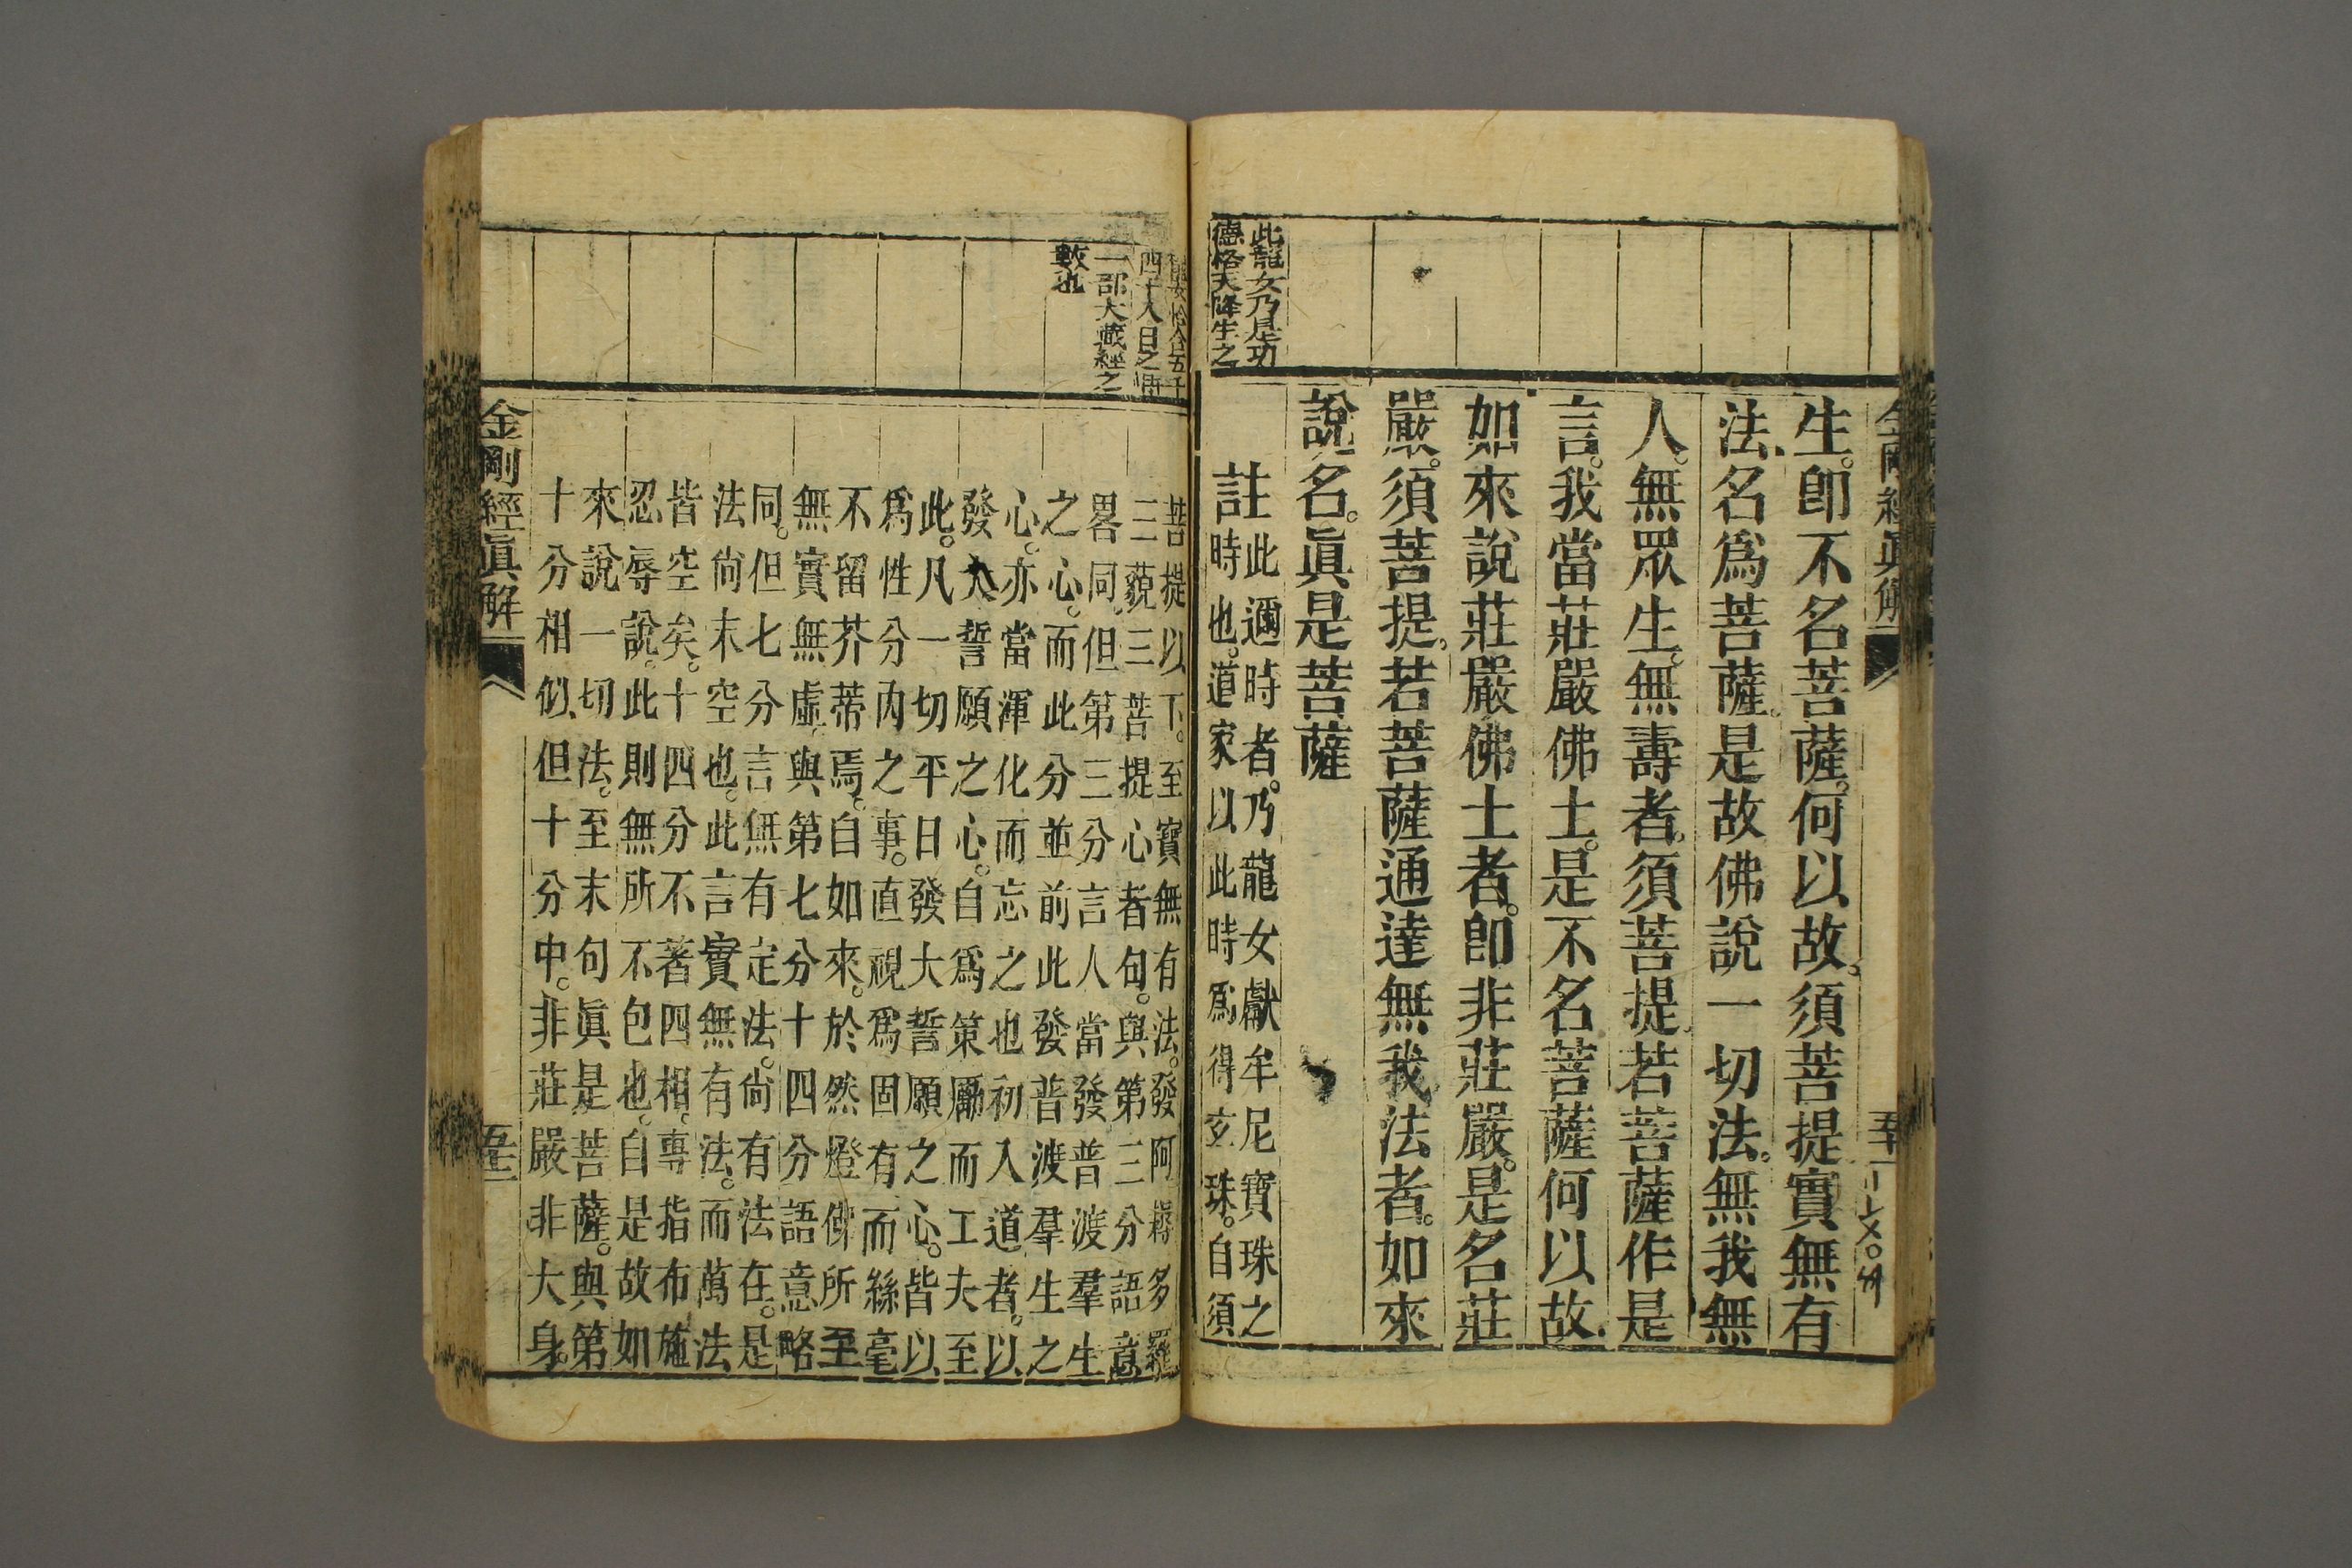 金剛經眞解
五十一
生。卽不名菩薩。何以故。須菩提實無有
法。名爲菩薩。是故佛說一切法。無我無
人。無眾生。無壽者。須菩提。若菩薩作是
言。我當莊嚴佛土。是不名菩薩何以故。
如來說莊嚴佛土者。卽非莊嚴。是名莊
嚴。須菩提。若菩薩通達無我法者。如來
說名。眞是菩薩
註此邇時者。乃龍女獻牟尼寶珠之
時也。道家以此時爲得玄珠。自須
此龍女乃是功
德格天降生之
龍女恰合五千
四十八日之
一部大藏經之
數也
菩提以下。至實無有法。發阿耨多羅
三藐三菩提心者句。與第三分語意
畧同。但第三分言人當發普渡羣生
之心。而此分並前此發普渡羣生之
心。亦當渾化而忘之也初入道者。以
發大誓願之心。自爲策勵而工夫至
此。凡一切平日發大誓願之心。皆以
爲性分內之事。直視爲固有而絲毫
不留芥蒂焉。自如來。於然燈佛所至
無實無虛。與第七分十四分語意略
同。但七分言無有定法。尙有法在。是
法尙未空也。此言實無有法。而萬法
皆空矣。十四分不著四相。專指布施
忍辱說。此則無所不包也。自是故如
來說一切法。至末句眞是菩薩。與第
十分相似。但十分中。非莊嚴非大身。
金剛經眞解